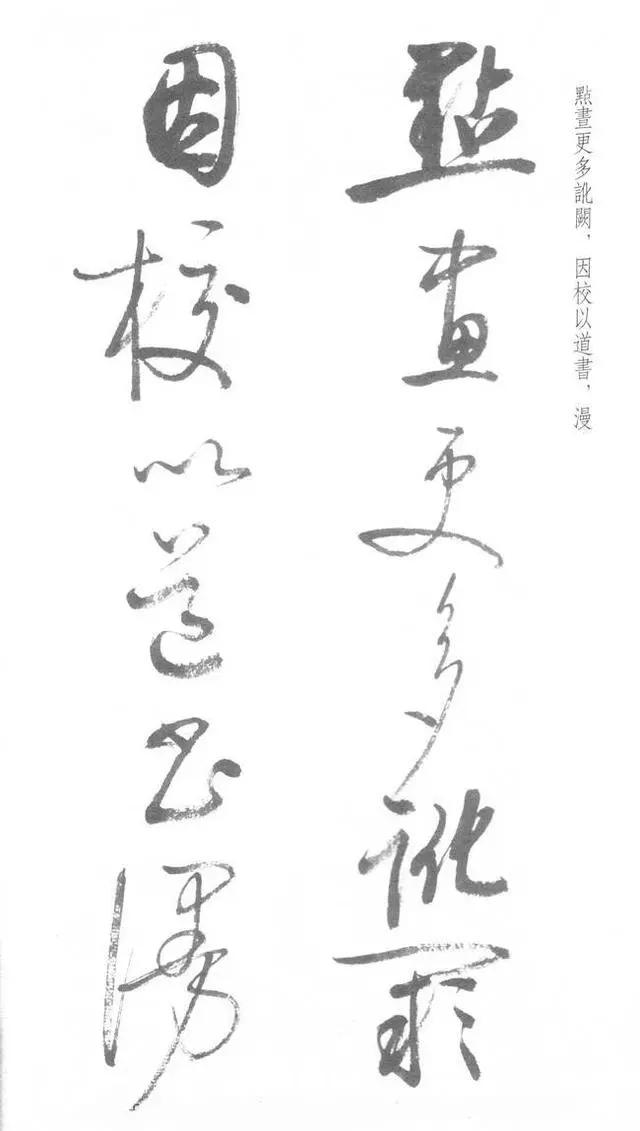 點畫更多訛闕，因校以道書，漫
點畫更多訛闕
因校以道書漫